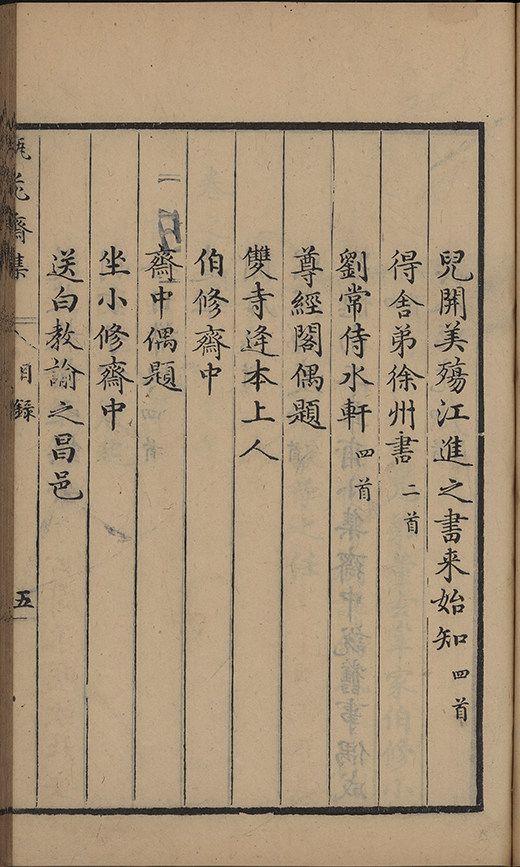 兒開美殤江進之書來始知 四首
得舍弟徐州書 二首
劉常侍水軒 四首
尊經閣偶題
雙寺逢本上人
伯修齋中
齋中偶題
坐小修齋中
送白教諭之昌邑
花齋集 目錄 五